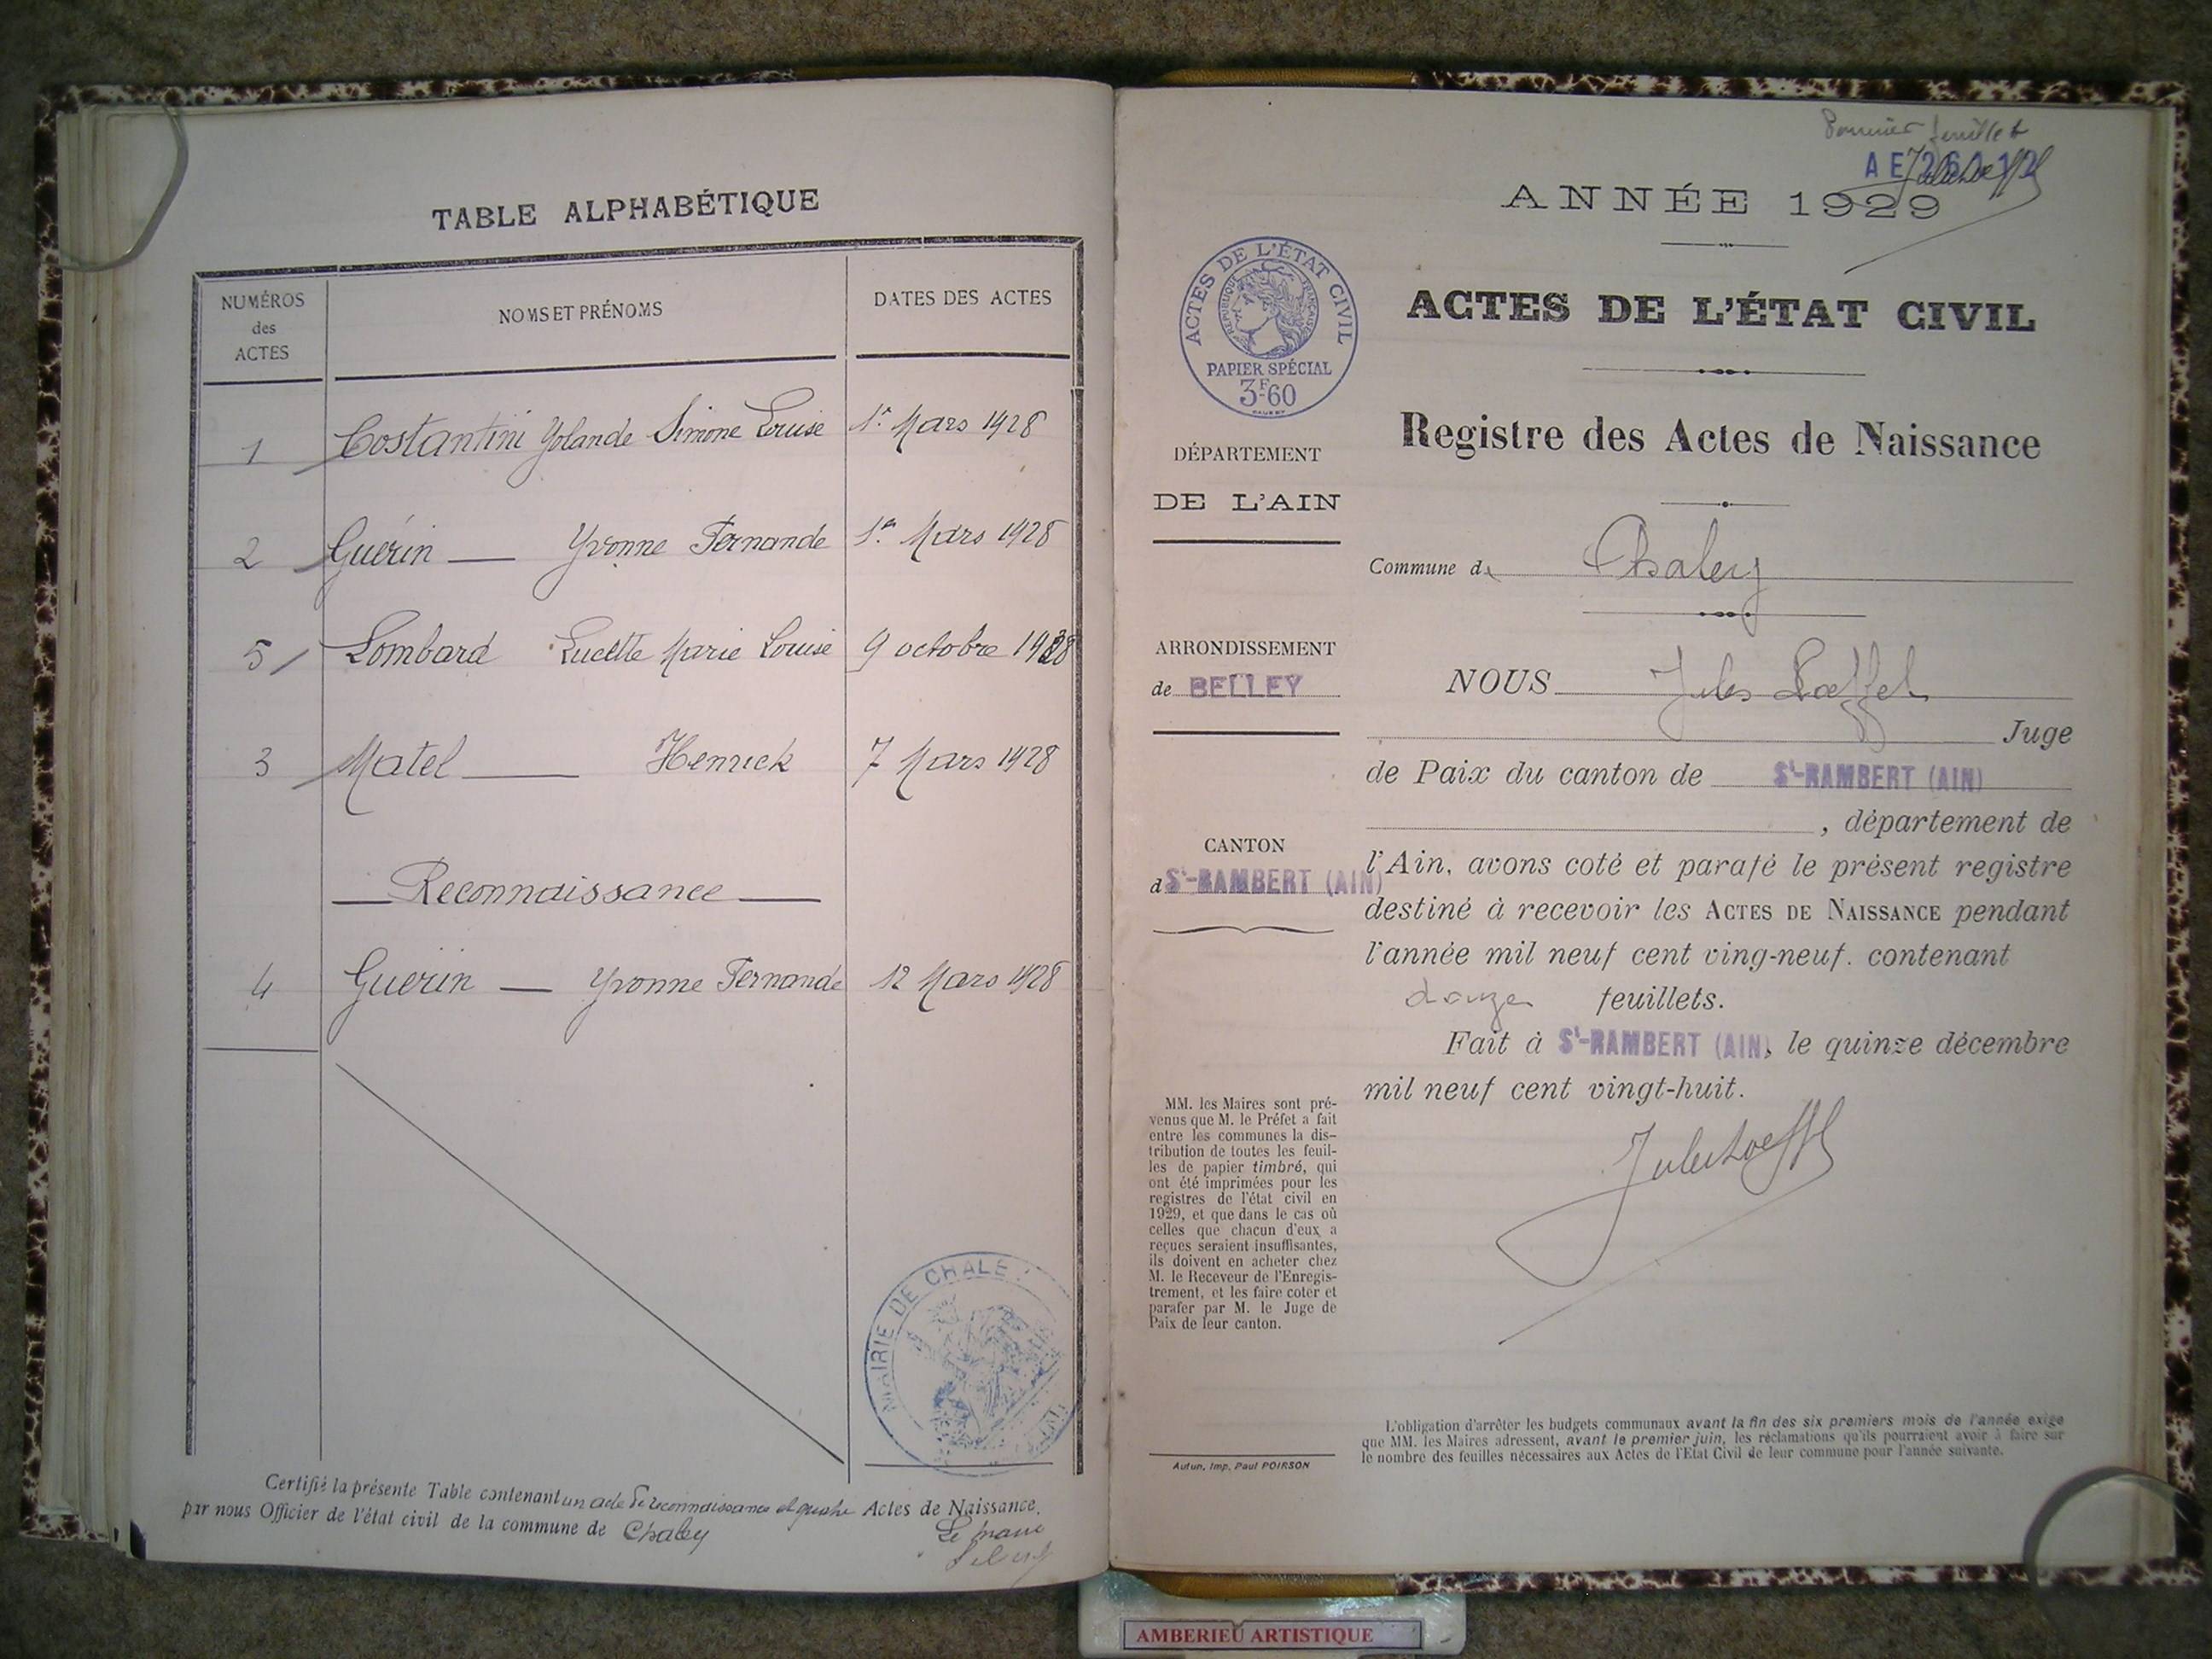 TABLE ALPHABÉTIQUE
NUMÉROS des ACTES
NOMS ET PRÉNOMS
DATES DES ACTES
1 Costantini Yolande Simone Louise 1er Mars 1928
2 Guérin — Yvonne Fernande 1er Mars 1928
5 Lombard Lucette Marie Louise 9 octobre 1928
3 Matel — Henrick 7 Mars 1928
— Reconnaissance —
4 Guérin — Yvonne Fernande 12 Mars 1928
MAIRIE DE CHALE
Certifié la présente Table contenant un acte de reconnaissance et quatre Actes de Naissance.
par nous Officier de l'état civil de la commune de Chaley
Le maire
Premier feuillet
ANNÉE 1929
ACTES DE L'ÉTAT CIVIL
RÉPUBLIQUE FRANÇAISE
PAPIER SPÉCIAL
3F60
ACTES DE L'ÉTAT CIVIL
Registre des Actes de Naissance
DÉPARTEMENT
DE L'AIN
Commune de Chaley
ARRONDISSEMENT
de BELLEY
NOUS Jules Loeffel
Juge
de Paix du canton de St-RAMBERT (AIN)
, département de
CANTON
d St-RAMBERT (AIN)
l'Ain, avons coté et parafé le présent registre
destiné à recevoir les ACTES DE NAISSANCE pendant
l'année mil neuf cent ving-neuf. contenant
douze feuillets.
Fait à St-RAMBERT (AIN), le quinze décembre
mil neuf cent vingt-huit.
MM. les Maires sont pré-
venus que M. le Préfet a fait
entre les communes la dis-
tribution de toutes les feuil-
les de papier timbré, qui
ont été imprimées pour les
registres de l'état civil en
1929, et que dans le cas où
celles que chacun d'eux a
reçues seraient insuffisantes,
ils doivent en acheter chez
M. le Receveur de l'Enregis-
trement, et les faire coter et
parafer par M. le Juge de
Paix de leur canton.
Autun, Imp. Paul POIRSON
L'obligation d'arrêter les budgets communaux avant la fin des six premiers mois de l'année exige
que MM. les Maires adressent, avant le premier juin, les réclamations qu'ils pourraient avoir à faire sur
le nombre des feuilles nécessaires aux Actes de l'Etat Civil de leur commune pour l'année suivante.
AMBERIEU ARTISTIQUE